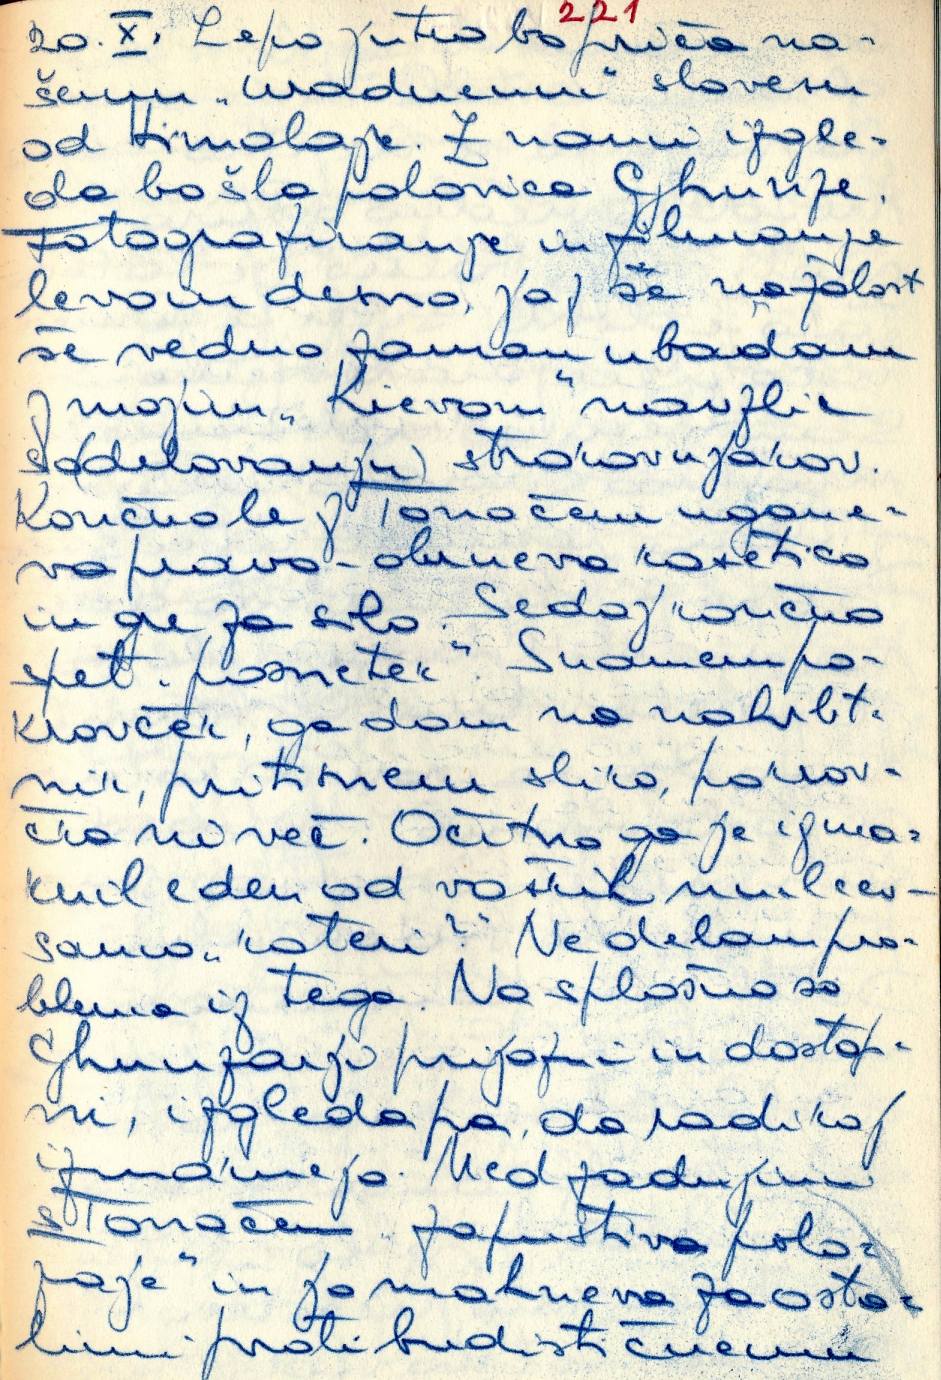 221
20. X. Lepo jutro bo priča na-
šemu „uradnemu“ slovesu
od Himalaje. Z nami izgle-
da bo šla polovica Ghunze.
Fotografiranje in filmanje
levo in desno, jaz se nažalost
še vedno zaman ubadam
z mojim „Kievom“ navzlic
so(delovanju) strokovnjakov.
Končno le z Tonačem ugane-
va pravo - obrneva kasetico
in gre za silo. Sedaj končno
spet „posnetek“. Snamem po-
krovček, ga dam na nahrbt-
nik, pritisnem sliko, pokrov-
čka ni več. Očitno ga je izma-
knil eden od vaških mulcev -
samo „kateri“? Ne delam pro-
blema iz tega. Na splošno so
Ghunzanji prijazni in dostop-
ni, izgleda pa, da radi kaj
izmaknejo. Med zadnjimi
s Tonačem „zapustiva polo-
žaje“ in jo mahneva za osta-
limi proti budističnemu